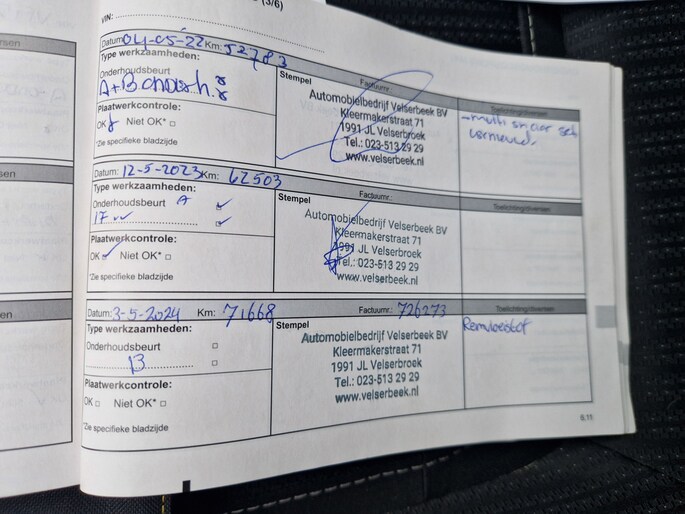 (3/6)
VIN:
Datum: 04-05-22 Km: 52783
Type werkzaamheden:
Onderhoudsbeurt
A+B onderh.
Plaatwerkcontrole:
OK Niet OK*
*Zie specifieke bladzijde
Stempel
Factuurnr.:
Automobielbedrijf Velserbeek BV
Kleermakerstraat 71
1991 JL Velserbroek
Tel.: 023-513 29 29
www.velserbeek.nl
Toelichting/diversen
- multi snaar set
vernieuwd.
Datum: 12-5-2023 Km: 62503
Type werkzaamheden:
Onderhoudsbeurt A
17
Plaatwerkcontrole:
OK Niet OK*
*Zie specifieke bladzijde
Stempel
Factuurnr.:
Automobielbedrijf Velserbeek BV
Kleermakerstraat 71
1991 JL Velserbroek
Tel.: 023-513 29 29
www.velserbeek.nl
Toelichting/diversen
Datum: 3-5-2024 Km: 71668
Type werkzaamheden:
Onderhoudsbeurt
B
Plaatwerkcontrole:
OK Niet OK*
*Zie specifieke bladzijde
Stempel
Factuurnr.: 726273
Automobielbedrijf Velserbeek BV
Kleermakerstraat 71
1991 JL Velserbroek
Tel.: 023-513 29 29
www.velserbeek.nl
Toelichting/diversen
Remvloeistof
6.11